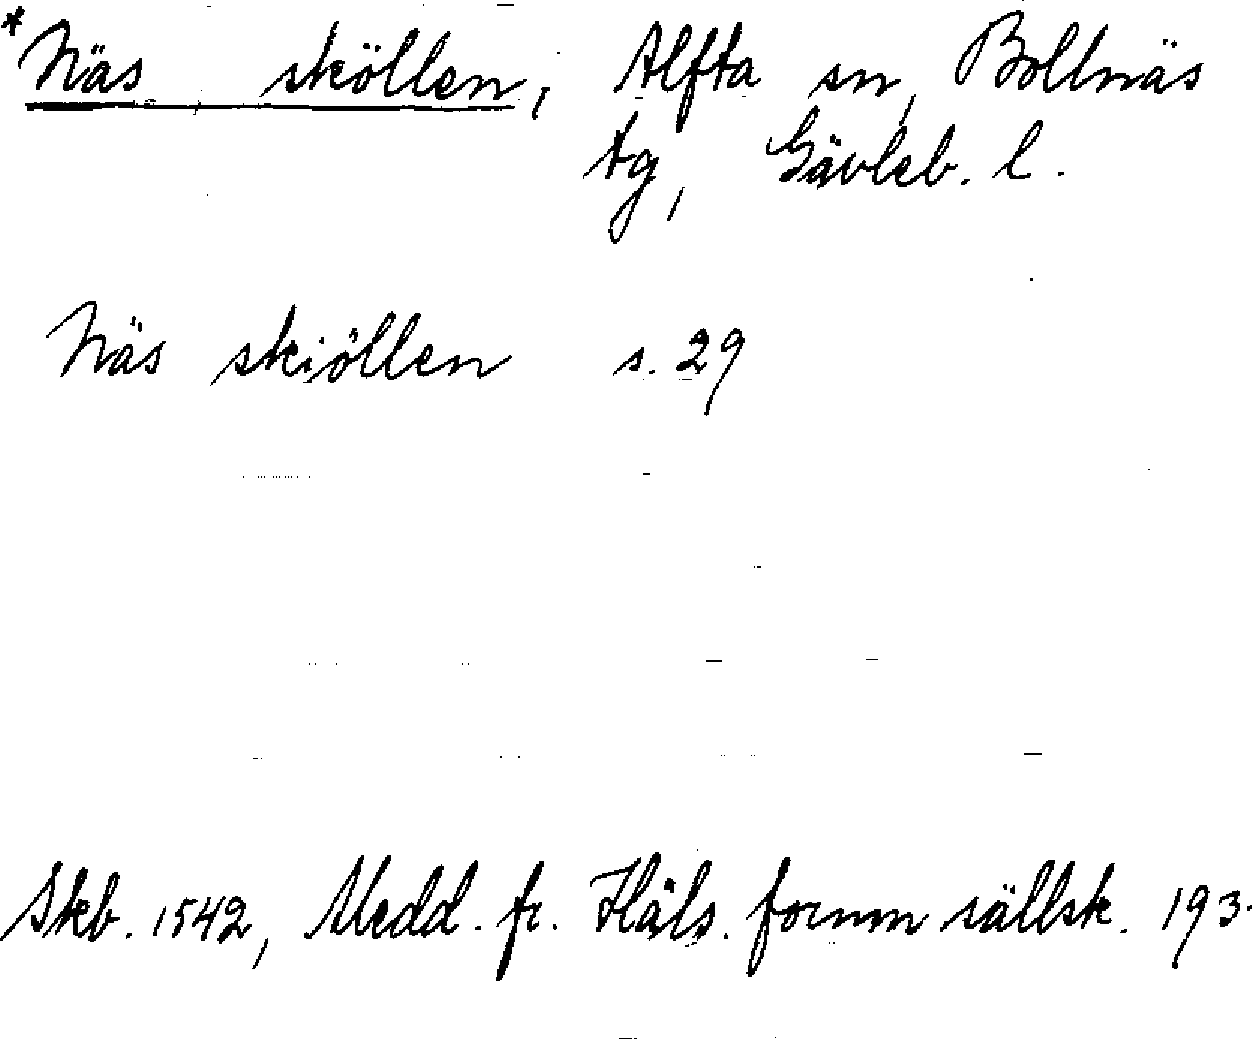 *Näs sköllen, Alfta sn, Bollnäs
tg, Gävleb. l.
Näs skiöllen s. 29
Skb. 1542, Medd. fr. Häls. fornm sällsk. 193